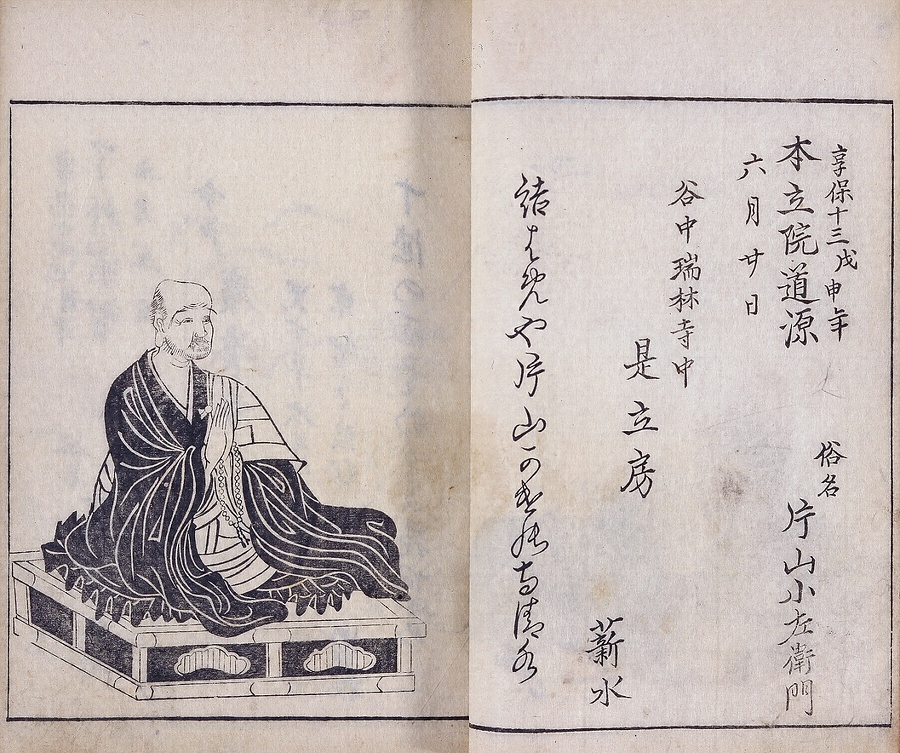 享保十三戊申年
本立院道源
俗名
片山小左衛門
六月廿日
谷中瑞林寺中
是立房
薪水
結 や片山 清水